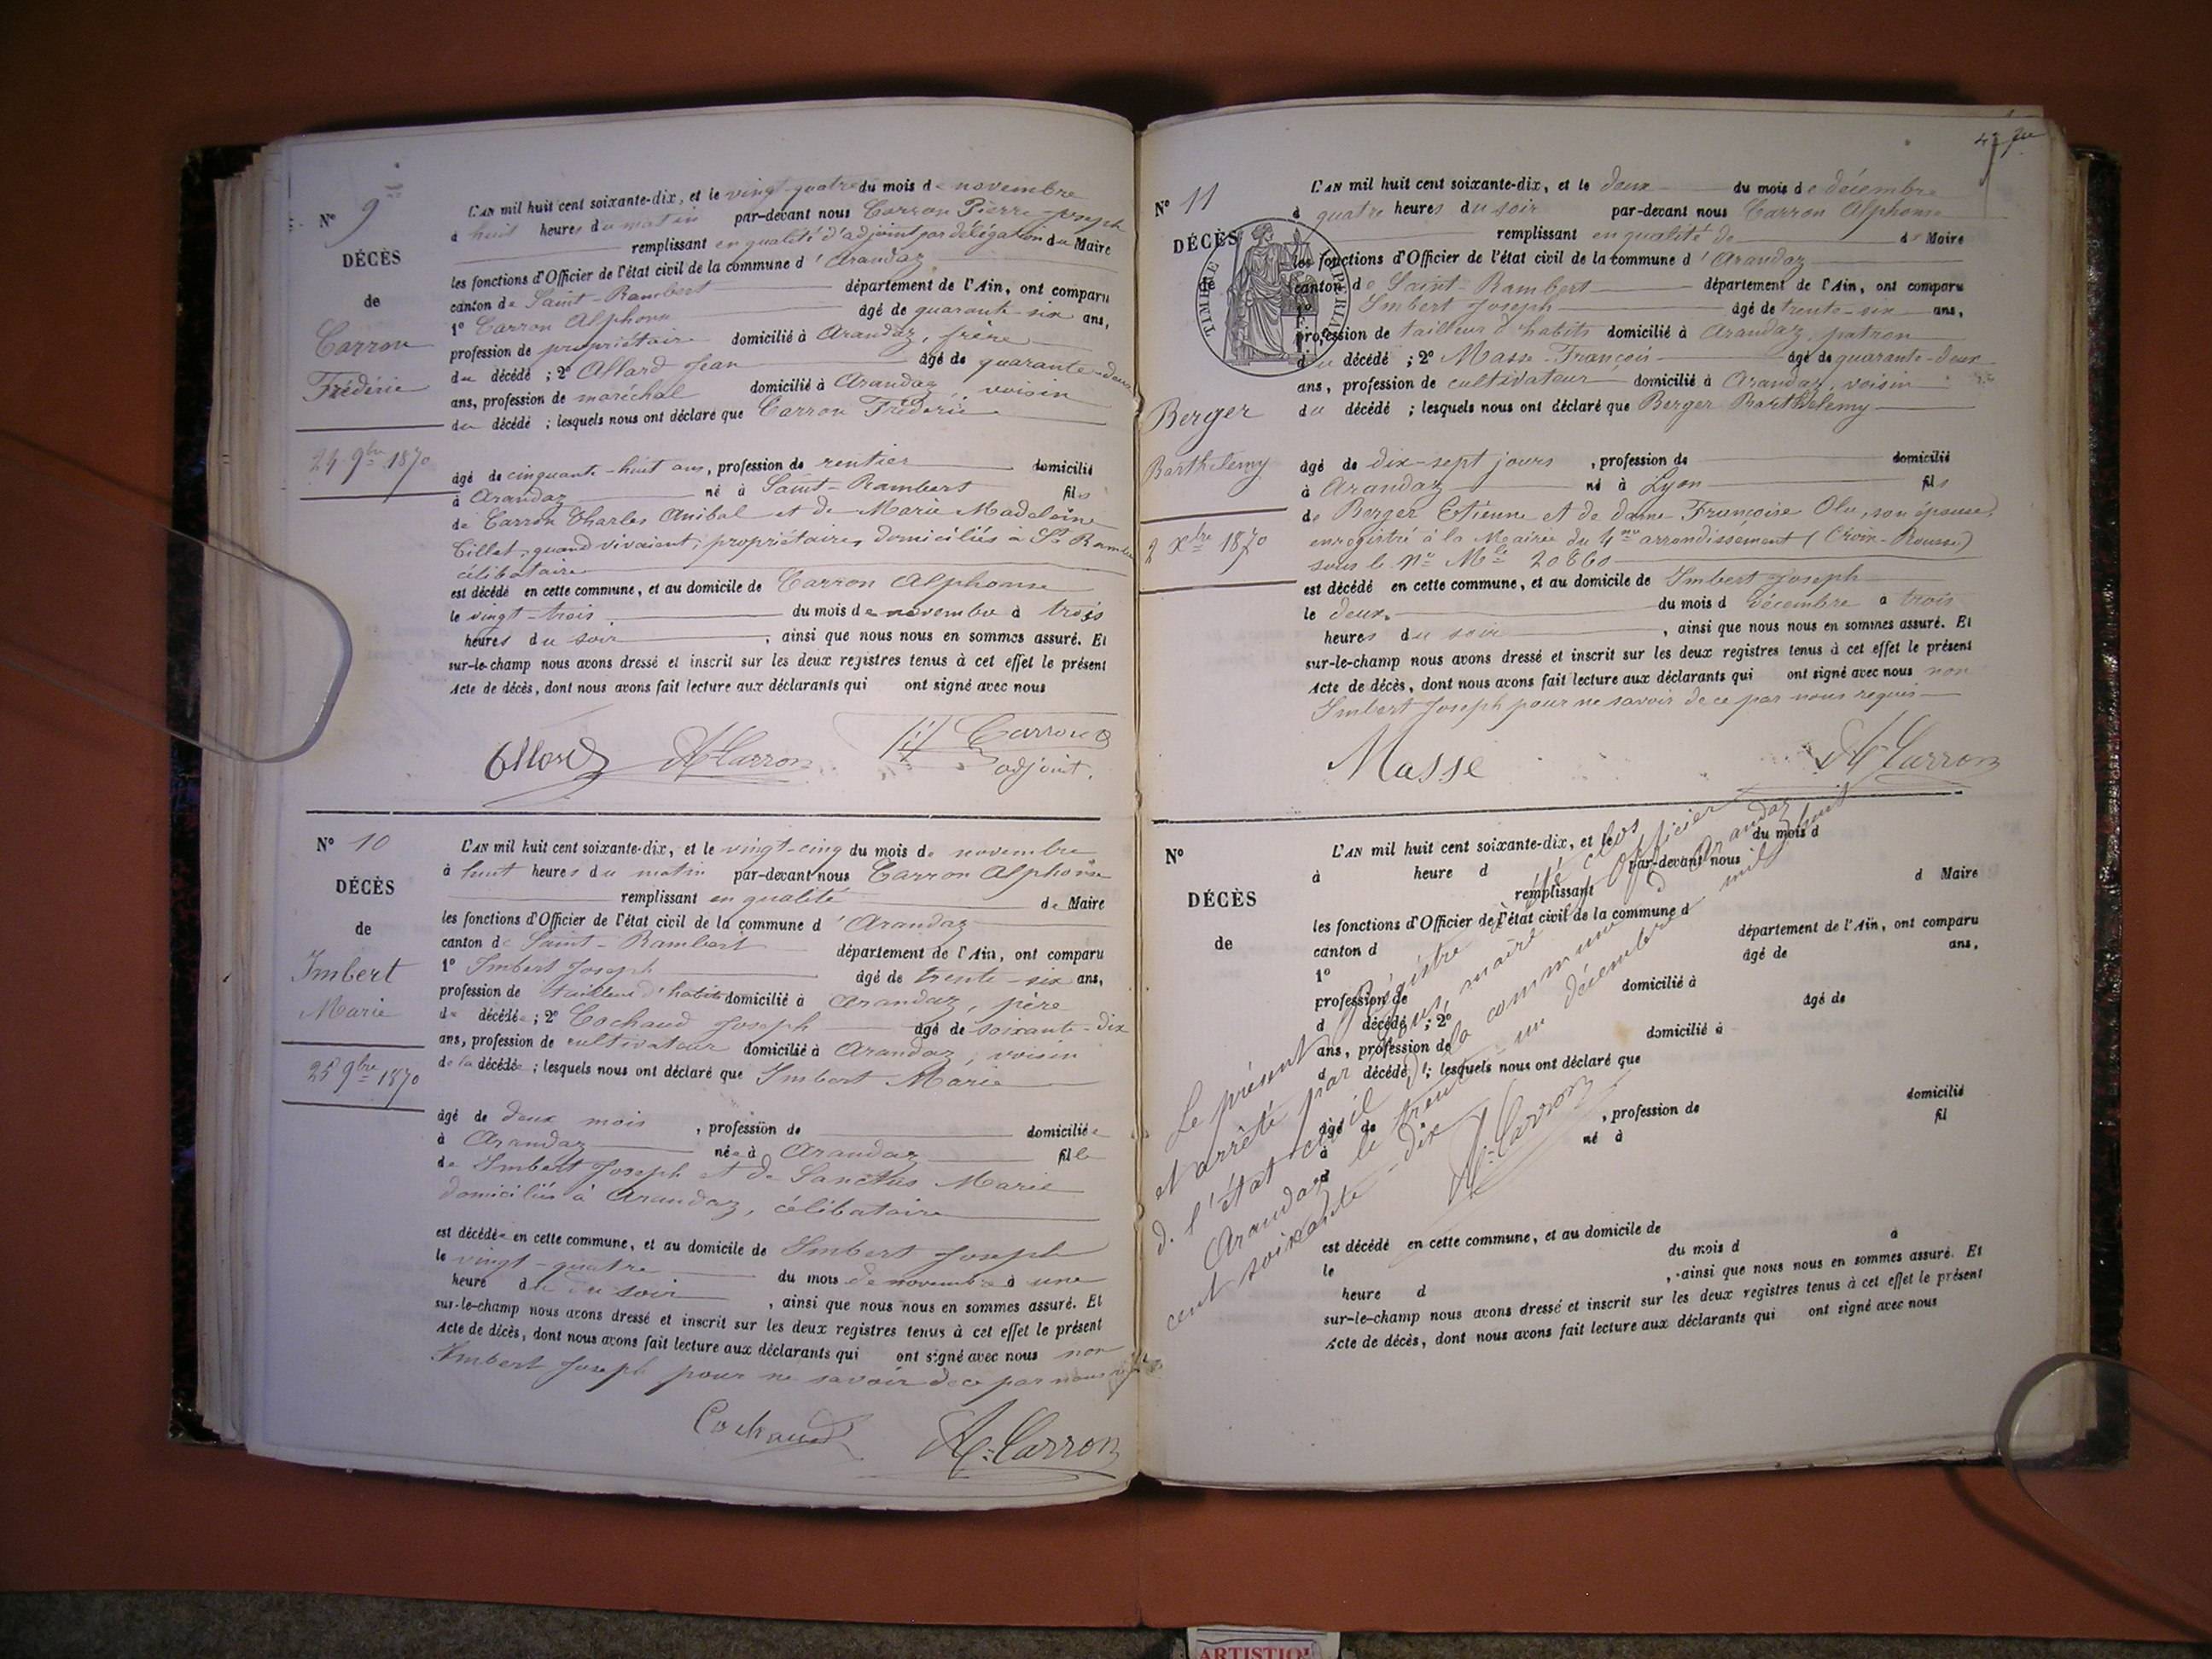 N° 9
DÉCÈS
de
Carron
Fréderic
24 9bre 1870
L'AN mil huit cent soixante-dix, et le vingt-quatre du mois de novembre
à huit heures du matin par-devant nous Carron Pierre-Joseph
remplissant en qualité d'adjoint par délégation du Maire
les fonctions d'Officier de l'état civil de la commune d'Arandaz
canton de Saint-Rambert département de l'Ain, ont comparu
1° Carron Alphonse âgé de quarante-six ans,
profession de propriétaire domicilié à Arandaz, frère
du décédé ; 2° Allard Jean âgé de quarante-deux
ans, profession de maréchal domicilié à Arandaz, voisin
du décédé ; lesquels nous ont déclaré que Carron Fréderic
âgé de cinquante-huit ans, profession de rentier domicilié
à Arandaz né à Saint-Rambert fils
de Carron Charles Anibal et de Marie Madeleine
Cillet, quand vivaient, propriétaires domiciliés à St Rambert
célibataire
est décédé en cette commune, et au domicile de Carron Alphonse
le vingt-trois du mois de novembre à trois
heures du soir, ainsi que nous nous en sommes assuré. Et
sur-le-champ nous avons dressé et inscrit sur les deux registres tenus à cet effet le présent
Acte de décès, dont nous avons fait lecture aux déclarants qui ont signé avec nous
Allard Al-Carron Carron
adjoint.
N° 10
DÉCÈS
de
Imbert
Marie
25 9bre 1870
L'AN mil huit cent soixante-dix, et le vingt-cinq du mois de novembre
à huit heures du matin par-devant nous Carron Alphonse
remplissant en qualité de Maire
les fonctions d'Officier de l'état civil de la commune d'Arandaz
canton de Saint-Rambert département de l'Ain, ont comparu
1° Imbert Joseph âgé de trente-six ans,
profession de tailleur d'habits domicilié à Arandaz, père
de décédée ; 2° Cochaud Joseph âgé de soixante-dix
ans, profession de cultivateur domicilié à Arandaz, voisin
de la décédée ; lesquels nous ont déclaré que Imbert Marie
âgé de deux mois, profession de domiciliée
à Arandaz née à Arandaz fille
de Imbert Joseph et de Sanctus Marie
domiciliés à Arandaz, célibataire
est décédée en cette commune, et au domicile de Imbert Joseph
le vingt-quatre du mois de novembre à une
heure du soir, ainsi que nous nous en sommes assuré. Et
sur-le-champ nous avons dressé et inscrit sur les deux registres tenus à cet effet le présent
Acte de décès, dont nous avons fait lecture aux déclarants qui ont signé avec nous non
Imbert Joseph pour ne savoir de ce par nous requis
Cochaud Al-Carron
N° 11
DÉCÈS
de
Berger
Barthelemy
2 Xbre 1870
TIMBRE IMPERIAL
L'AN mil huit cent soixante-dix, et le deux du mois de décembre
à quatre heures du soir par-devant nous Carron Alphonse
remplissant en qualité de de Maire
les fonctions d'Officier de l'état civil de la commune d'Arandaz
canton de Saint-Rambert département de l'Ain, ont comparu
1° Imbert Joseph âgé de trente-six ans,
profession de tailleur d'habits domicilié à Arandaz, patron
du décédé ; 2° Masse François âgé de quarante-deux
ans, profession de cultivateur domicilié à Arandaz, voisin
du décédé ; lesquels nous ont déclaré que Berger Barthelemy
âgé de dix-sept jours, profession de domicilié
à Arandaz né à Lyon fils
de Berger Etienne et de dame Françoise Olu, son épouse,
enregistré à la Mairie du 4me arrondissement (Croix-Rousse)
sous le No Mle 20860
est décédé en cette commune, et au domicile de Imbert Joseph
le deux du mois d décembre à trois
heures du soir, ainsi que nous nous en sommes assuré. Et
sur-le-champ nous avons dressé et inscrit sur les deux registres tenus à cet effet le présent
Acte de décès, dont nous avons fait lecture aux déclarants qui ont signé avec nous non
Imbert Joseph pour ne savoir de ce par nous requis
Masse Al-Carron
N°
DÉCÈS
de
L'AN mil huit cent soixante-dix, et le du mois d
à heure d par-devant nous
remplissant d Maire
les fonctions d'Officier de l'état civil de la commune d
canton d département de l'Ain, ont comparu
1° âgé de ans,
profession de domicilié à
d décédé ; 2° âgé de
ans, profession de domicilié à
d décédé ; lesquels nous ont déclaré que
âgé de , profession de domicilié
à né à fil
d
est décédé en cette commune, et au domicile de
le du mois d à
heure d , ainsi que nous nous en sommes assuré. Et
sur-le-champ nous avons dressé et inscrit sur les deux registres tenus à cet effet le présent
Acte de décès, dont nous avons fait lecture aux déclarants qui ont signé avec nous
Le présent Registre a été clos
et arrêté par nous, maire Officier
de l'état civil de la commune d'Arandaz
Arandaz le trente-un décembre mil huit
cent soixante-dix
Al-Carron
ARTISTIQ